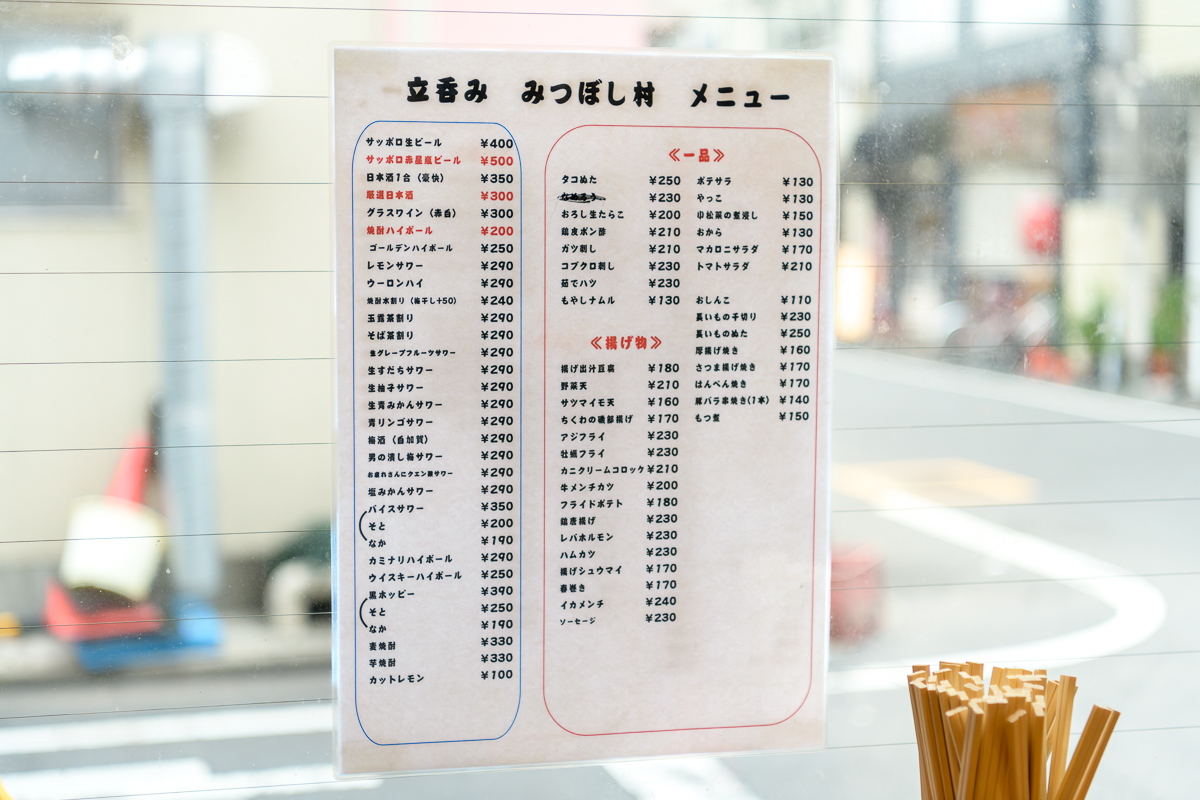 立呑み みつぼし村 メニュー
サッポロ生ビール ¥400
サッポロ赤星瓶ビール ¥500
日本酒1合（豪快） ¥350
厳選日本酒 ¥300
グラスワイン（赤白） ¥300
焼酎ハイボール ¥200
ゴールデンハイボール ¥250
レモンサワー ¥290
ウーロンハイ ¥290
焼酎水割り（梅干し+50） ¥240
玉露茶割り ¥290
そば茶割り ¥290
生グレープフルーツサワー ¥290
生すだちサワー ¥290
生柚子サワー ¥290
生青みかんサワー ¥290
青リンゴサワー ¥290
梅酒（白加賀） ¥290
男の潰し梅サワー ¥290
お疲れさんにクエン酸サワー ¥290
塩みかんサワー ¥290
バイスサワー ¥350
そと ¥200
なか ¥190
カミナリハイボール ¥290
ウイスキーハイボール ¥250
黒ホッピー ¥390
そと ¥250
なか ¥190
麦焼酎 ¥330
芋焼酎 ¥330
カットレモン ¥100
≪一品≫
タコぬた ¥250
¥230
おろし生たらこ ¥200
鶏皮ポン酢 ¥210
ガツ刺し ¥210
コブクロ刺し ¥230
茹でハツ ¥230
もやしナムル ¥130
ポテサラ ¥130
やっこ ¥130
小松菜の煮浸し ¥150
おから ¥130
マカロニサラダ ¥170
トマトサラダ ¥210
おしんこ ¥110
長いもの千切り ¥230
長いものぬた ¥250
厚揚げ焼き ¥160
さつま揚げ焼き ¥170
はんぺん焼き ¥170
豚バラ串焼き(1本) ¥140
もつ煮 ¥150
≪揚げ物≫
揚げ出汁豆腐 ¥180
野菜天 ¥210
サツマイモ天 ¥160
ちくわの磯部揚げ ¥170
アジフライ ¥230
牡蠣フライ ¥230
カニクリームコロッケ ¥210
牛メンチカツ ¥200
フライドポテト ¥180
鶏唐揚げ ¥230
レバホルモン ¥230
ハムカツ ¥230
揚げシュウマイ ¥170
春巻き ¥170
イカメンチ ¥240
ソーセージ ¥230